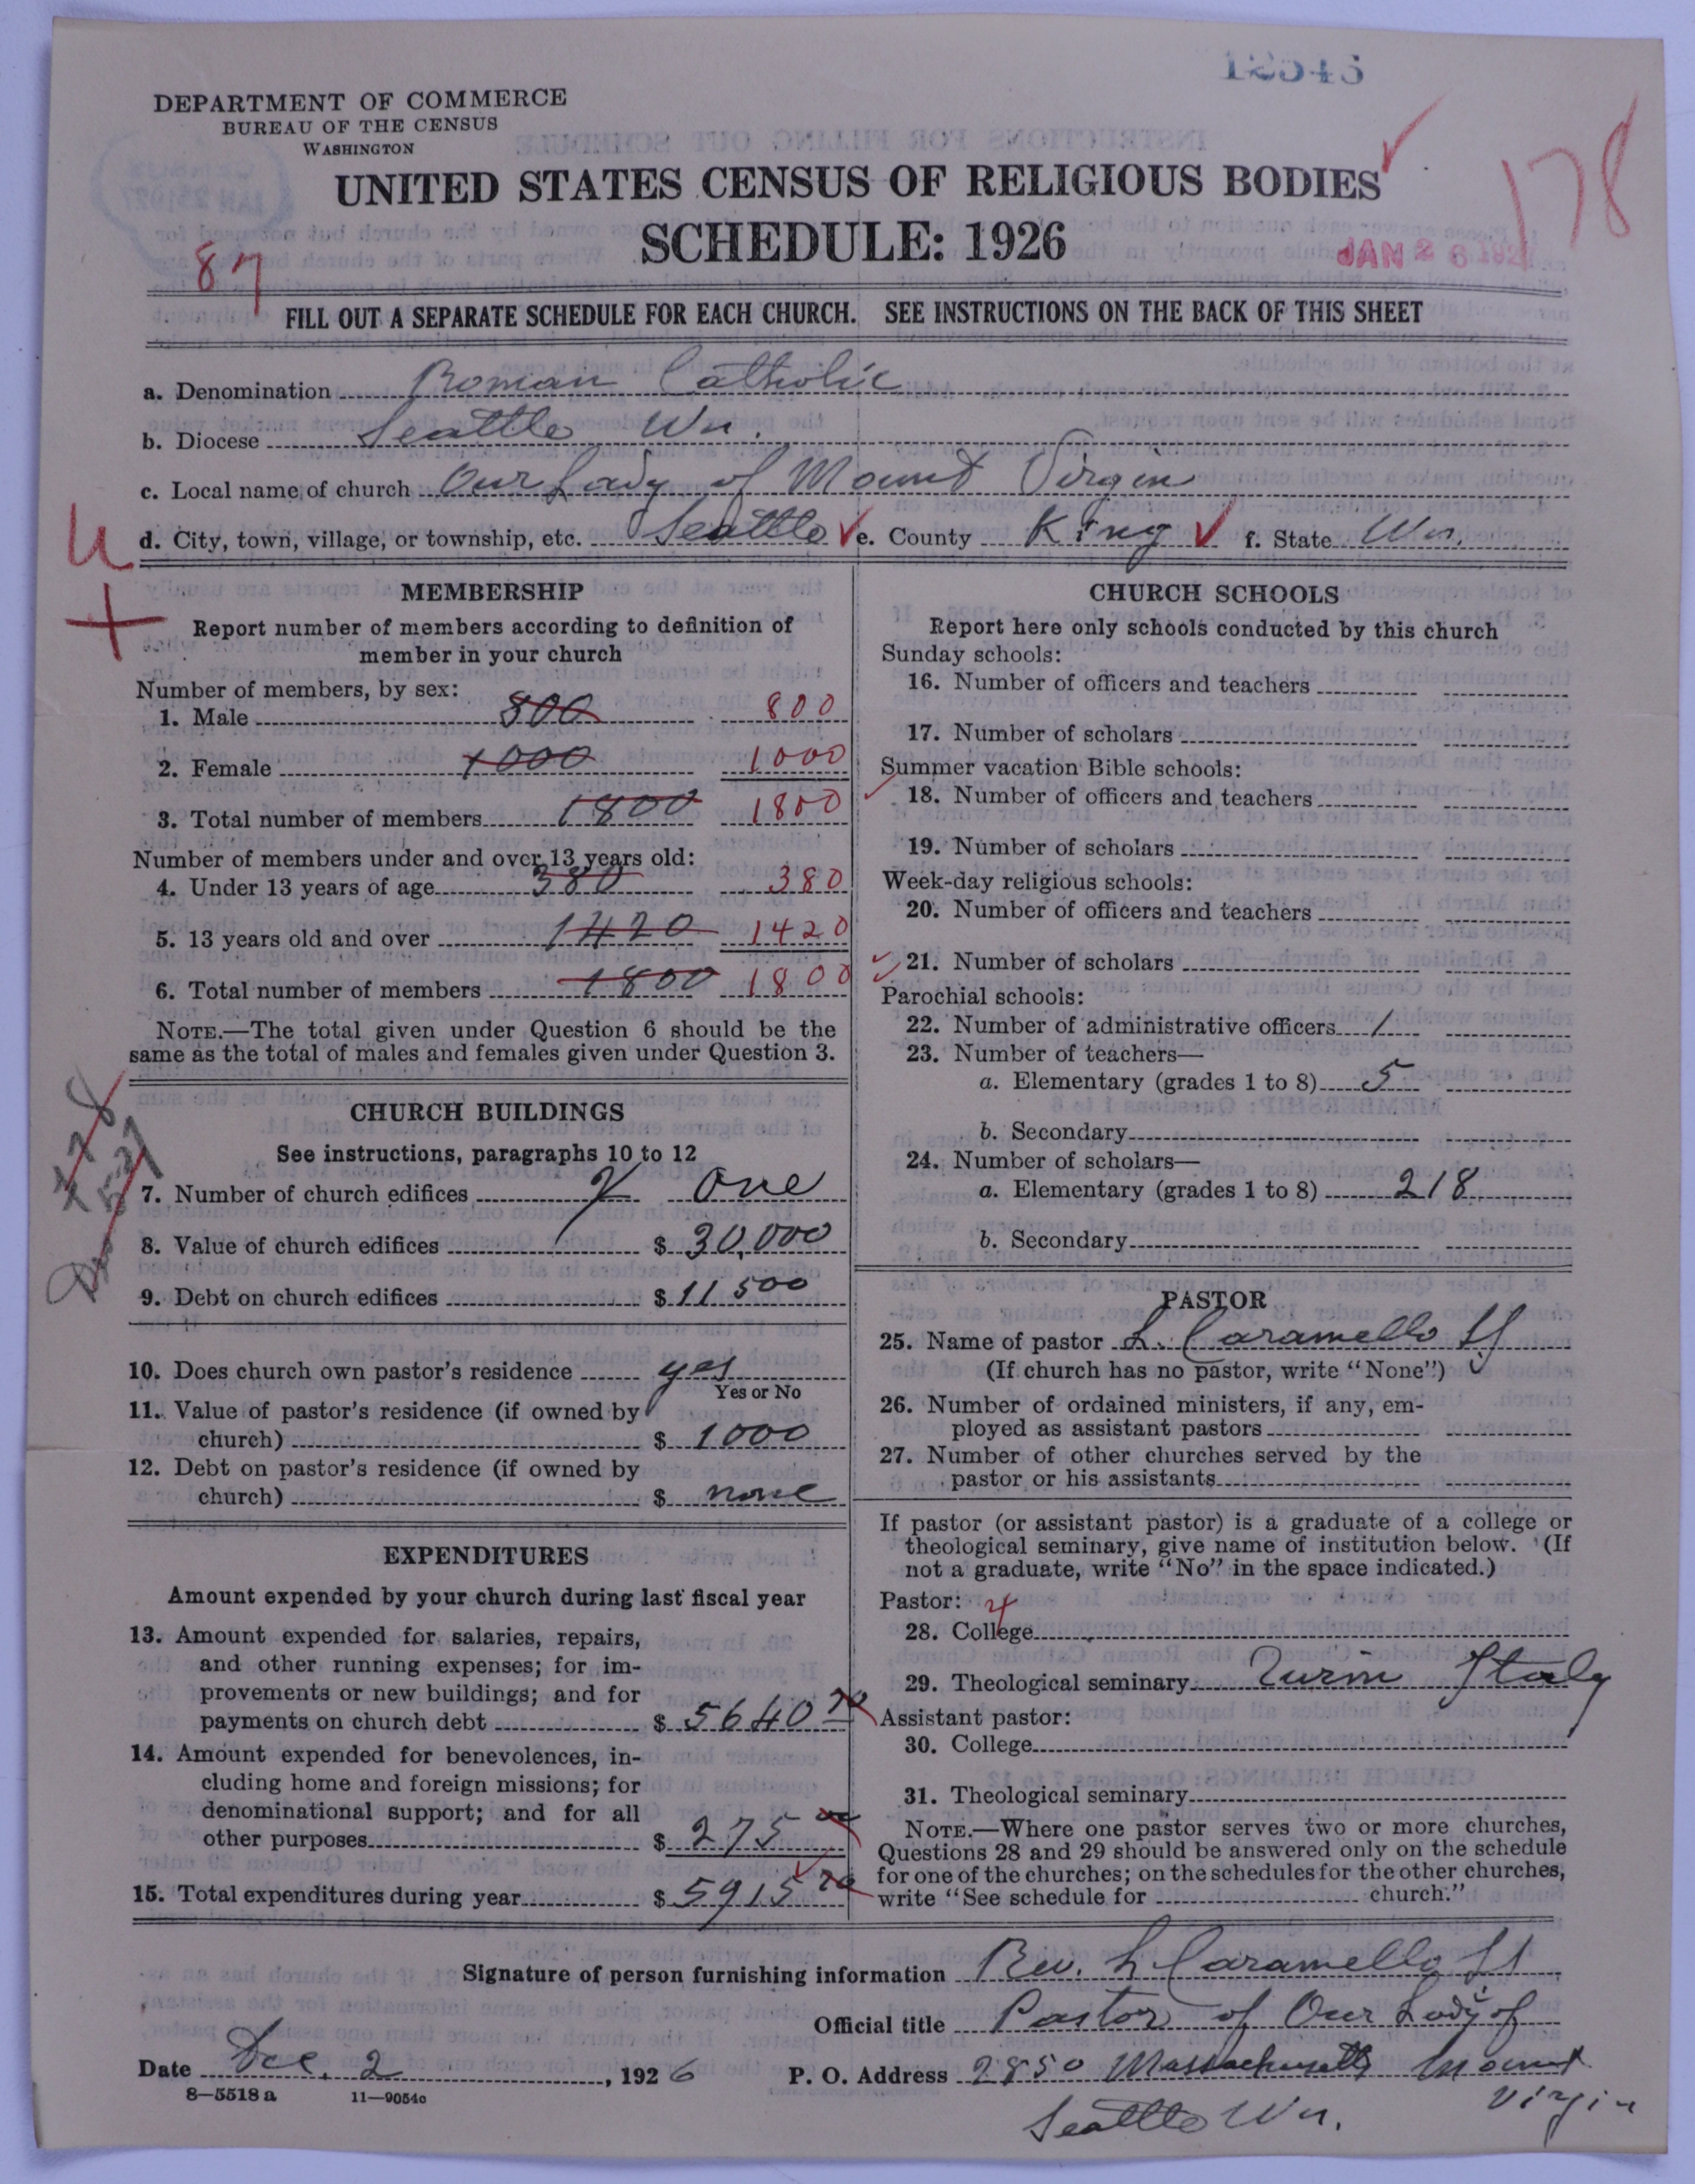 DEPARTMENT OF COMMERCE
BUREAU OF THE CENSUS
WASHINGTON
UNITED STATES CENSUS OF RELIGIOUS BODIES
178
SCHEDULE: 1926
JAN 26 192
87
FILL OUT A SEPARATE SCHEDULE FOR EACH CHURCH. SEE INSTRUCTIONS ON THE BACK OF THIS SHEET
a. Denomination Roman Catholic
b. Diocese Seattle Wn.
c. Local name of church Our Lady of Mount Virgin
d. City, town, village, or township, etc. Seattle e. County King f. State Wn.
MEMBERSHIP
Report number of members according to definition of
member in your church
Number of members, by sex:
1. Male 800 800
2. Female 1000 1000
3. Total number of members 1800 1800
Number of members under and over 13 years old:
4. Under 13 years of age 380 380
5. 13 years old and over 1420 1420
6. Total number of members 1800 1800
NOTE.—The total given under Question 6 should be the
same as the total of males and females given under Question 3.
CHURCH BUILDINGS
See instructions, paragraphs 10 to 12
7. Number of church edifices One
8. Value of church edifices $ 30,000
9. Debt on church edifices $ 11 500
10. Does church own pastor's residence yes
Yes or No
11. Value of pastor's residence (if owned by
church) $ 1000
12. Debt on pastor's residence (if owned by
church) $ none
EXPENDITURES
Amount expended by your church during last fiscal year
13. Amount expended for salaries, repairs,
and other running expenses; for im-
provements or new buildings; and for
payments on church debt $ 5640 70
14. Amount expended for benevolences, in-
cluding home and foreign missions; for
denominational support; and for all
other purposes $ 275
15. Total expenditures during year $ 5915 70
CHURCH SCHOOLS
Report here only schools conducted by this church
Sunday schools:
16. Number of officers and teachers
17. Number of scholars
Summer vacation Bible schools:
18. Number of officers and teachers
19. Number of scholars
Week-day religious schools:
20. Number of officers and teachers
21. Number of scholars
Parochial schools:
22. Number of administrative officers 1
23. Number of teachers—
a. Elementary (grades 1 to 8) 5
b. Secondary
24. Number of scholars—
a. Elementary (grades 1 to 8) 218
b. Secondary
PASTOR
25. Name of pastor L. Caramello SJ
(If church has no pastor, write "None")
26. Number of ordained ministers, if any, em-
ployed as assistant pastors
27. Number of other churches served by the
pastor or his assistants
If pastor (or assistant pastor) is a graduate of a college or
theological seminary, give name of institution below. (If
not a graduate, write "No" in the space indicated.)
Pastor: 4
28. College
29. Theological seminary Turin Italy
Assistant pastor:
30. College
31. Theological seminary
NOTE.—Where one pastor serves two or more churches,
Questions 28 and 29 should be answered only on the schedule
for one of the churches; on the schedules for the other churches,
write "See schedule for church."
Signature of person furnishing information Rev. L Caramello SJ
Official title Pastor of Our Lady of
Date Dec. 2, 1926 P. O. Address 2850 Massachusetts Mount
8—5518 a 11—9054c Virgin
Seattle Wn.